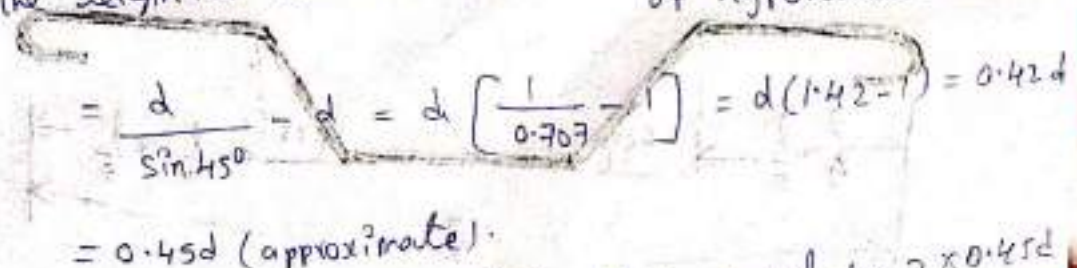 the
= d / sin.45° - d = d [ 1 / 0.707 - 1 ] = d(1.42-1) = 0.42d
= 0.45d (approximate).
0.45d